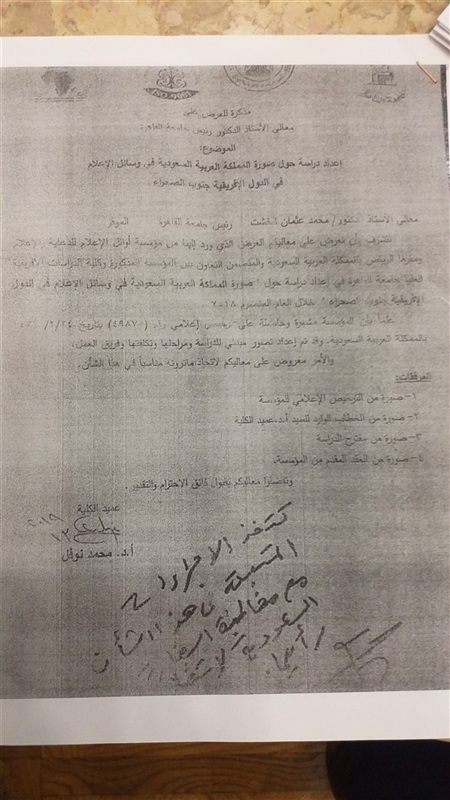 مذكرة للعرض على
معالي الأستاذ الدكتور رئيس جامعة القاهرة
الموضوع:
إعداد دراسة حول صورة المملكة العربية السعودية في وسائل الإعلام
في الدول الإفريقية جنوب الصحراء
معالي الأستاذ الدكتور/ محمد عثمان الخشت رئيس جامعة القاهرة الموقر
نتشرف بأن نعرض على معاليكم العرض الذي ورد إلينا من مؤسسة أوائل الإعلام للدعاية والإعلام
ومقرها الرياض بالمملكة العربية السعودية والمتضمن التعاون بين المؤسسة المذكورة وكلية الدراسات الأفريقية
العليا جامعة القاهرة في إعداد دراسة حول "صورة المملكة العربية السعودية في وسائل الإعلام في الدول
الإفريقية جنوب الصحراء" خلال العام المنصرم ٢٠١٨
علماً بأن المؤسسة مشهرة وحاصلة على ترخيص إعلامي رقم (49870) بتاريخ ٢/٢٤/
بالمملكة العربية السعودية. وقد تم إعداد تصور مبدئي للدراسة ومراحلها وتكلفتها وفريق العمل.
والأمر معروض على معاليكم لاتخاذ ماترونه مناسباً في هذا الشأن.
المرفقات:
١- صورة من الترخيص الإعلامي للمؤسسة
٢- صورة من الخطاب الوارد للسيد أ.د. عميد الكلية
٣- صورة من مقترح الدراسة
٤- صورة من العقد المقدم من المؤسسة.
وتفضلوا معاليكم بقبول فائق الاحترام والتقدير،
عميد الكلية
أ.د. محمد نوفل
تتخذ الإجراءات
المتبعة في هذا الشأن
مع مخاطبة السفارة
السعودية